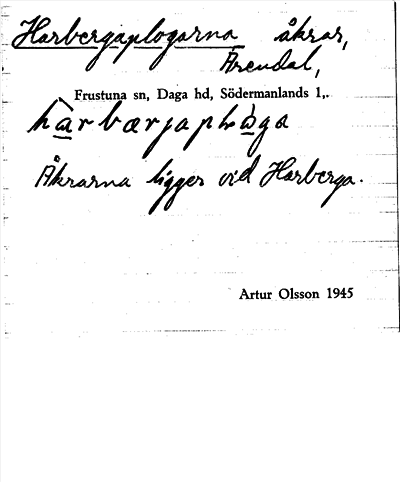 Harbergaplogarna åkrar,
Ärendal,
Frustuna sn, Daga hd, Södermanlands l,.
Åkrarna ligger vid Harberga.
Artur Olsson 1945